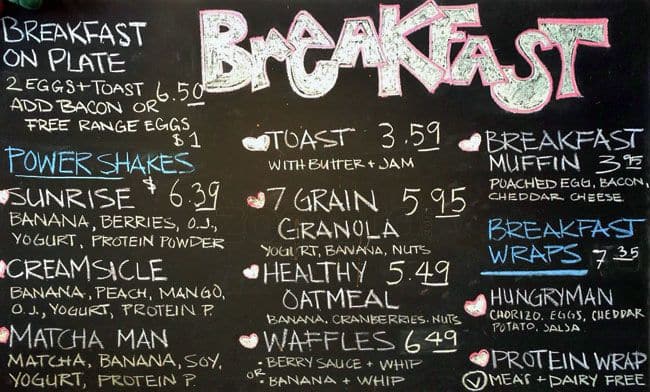 BREAKFAST
BREAKFAST
ON PLATE
2 EGGS + TOAST 6.50
ADD BACON OR
FREE RANGE EGGS
$1
POWER SHAKES
SUNRISE $6.39
BANANA, BERRIES, O.J.,
YOGURT, PROTEIN POWDER
CREAMSICLE
BANANA, PEACH, MANGO,
O.J., YOGURT, PROTEIN P.
MATCHA MAN
MATCHA, BANANA, SOY,
YOGURT, PROTEIN P.
TOAST 3.59
WITH BUTTER + JAM
7 GRAIN 5.95
GRANOLA
YOGURT, BANANA, NUTS
HEALTHY 5.49
OATMEAL
BANANA, CRANBERRIES, NUTS
WAFFLES 6.49
• BERRY SAUCE + WHIP
OR
• BANANA + WHIP
BREAKFAST
MUFFIN 3.95
POACHED EGG, BACON,
CHEDDAR CHEESE
BREAKFAST
WRAPS 7.35
HUNGRYMAN
CHORIZO, EGGS, CHEDDAR
POTATO, SALSA
PROTEIN WRAP
V MEAT + DAIRY FREE